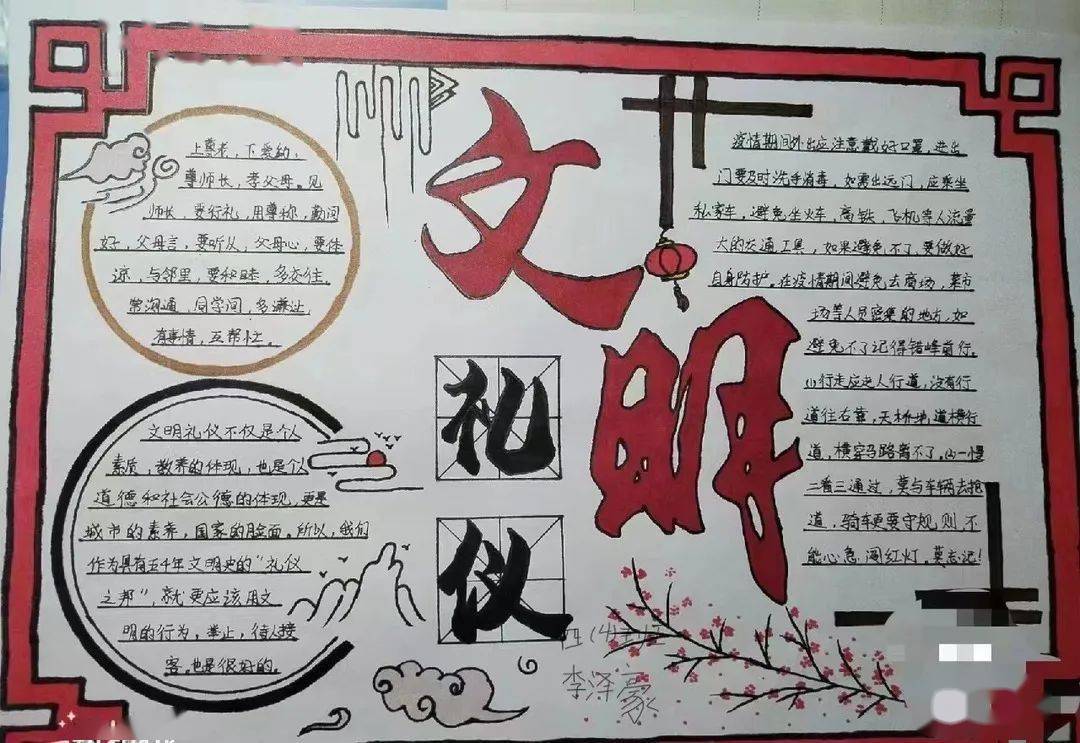 文明
礼仪
上尊老，下爱幼，
尊师长，孝父母。见
师长，要行礼，用尊称，勤问
好，父母言，要听从，父母心，要体
谅，与邻里，要和睦，多交往，
常沟通，同学间，多谦让，
有事情，互帮忙。
文明礼仪不仅是个人
素质，教养的体现，也是个人
道德和社会公德的体现，更是
城市的素养，国家的脸面。所以，我们
作为具有五千年文明史的“礼仪
之邦”，就更应该用文
明的行为，举止，待人接
客。也是很好的。
疫情期间外出应注意戴好口罩，进出
门要及时洗手消毒，如需出远门，应乘坐
私家车，避免坐火车，高铁，飞机等人流量
大的交通工具，如果避免不了，要做好
自身防护。在疫情期间避免去商场，菜市
场等人员密集的地方，如
避免不了记得错峰前行。
(1)行走应走人行道，没有行
道往右靠，天桥地道横行
道，横穿马路离不了。(2)一慢
二看三通过，莫与车辆去抢
道，骑车更要守规则，不
能心急，闯红灯，莫忘记！
李泽豪